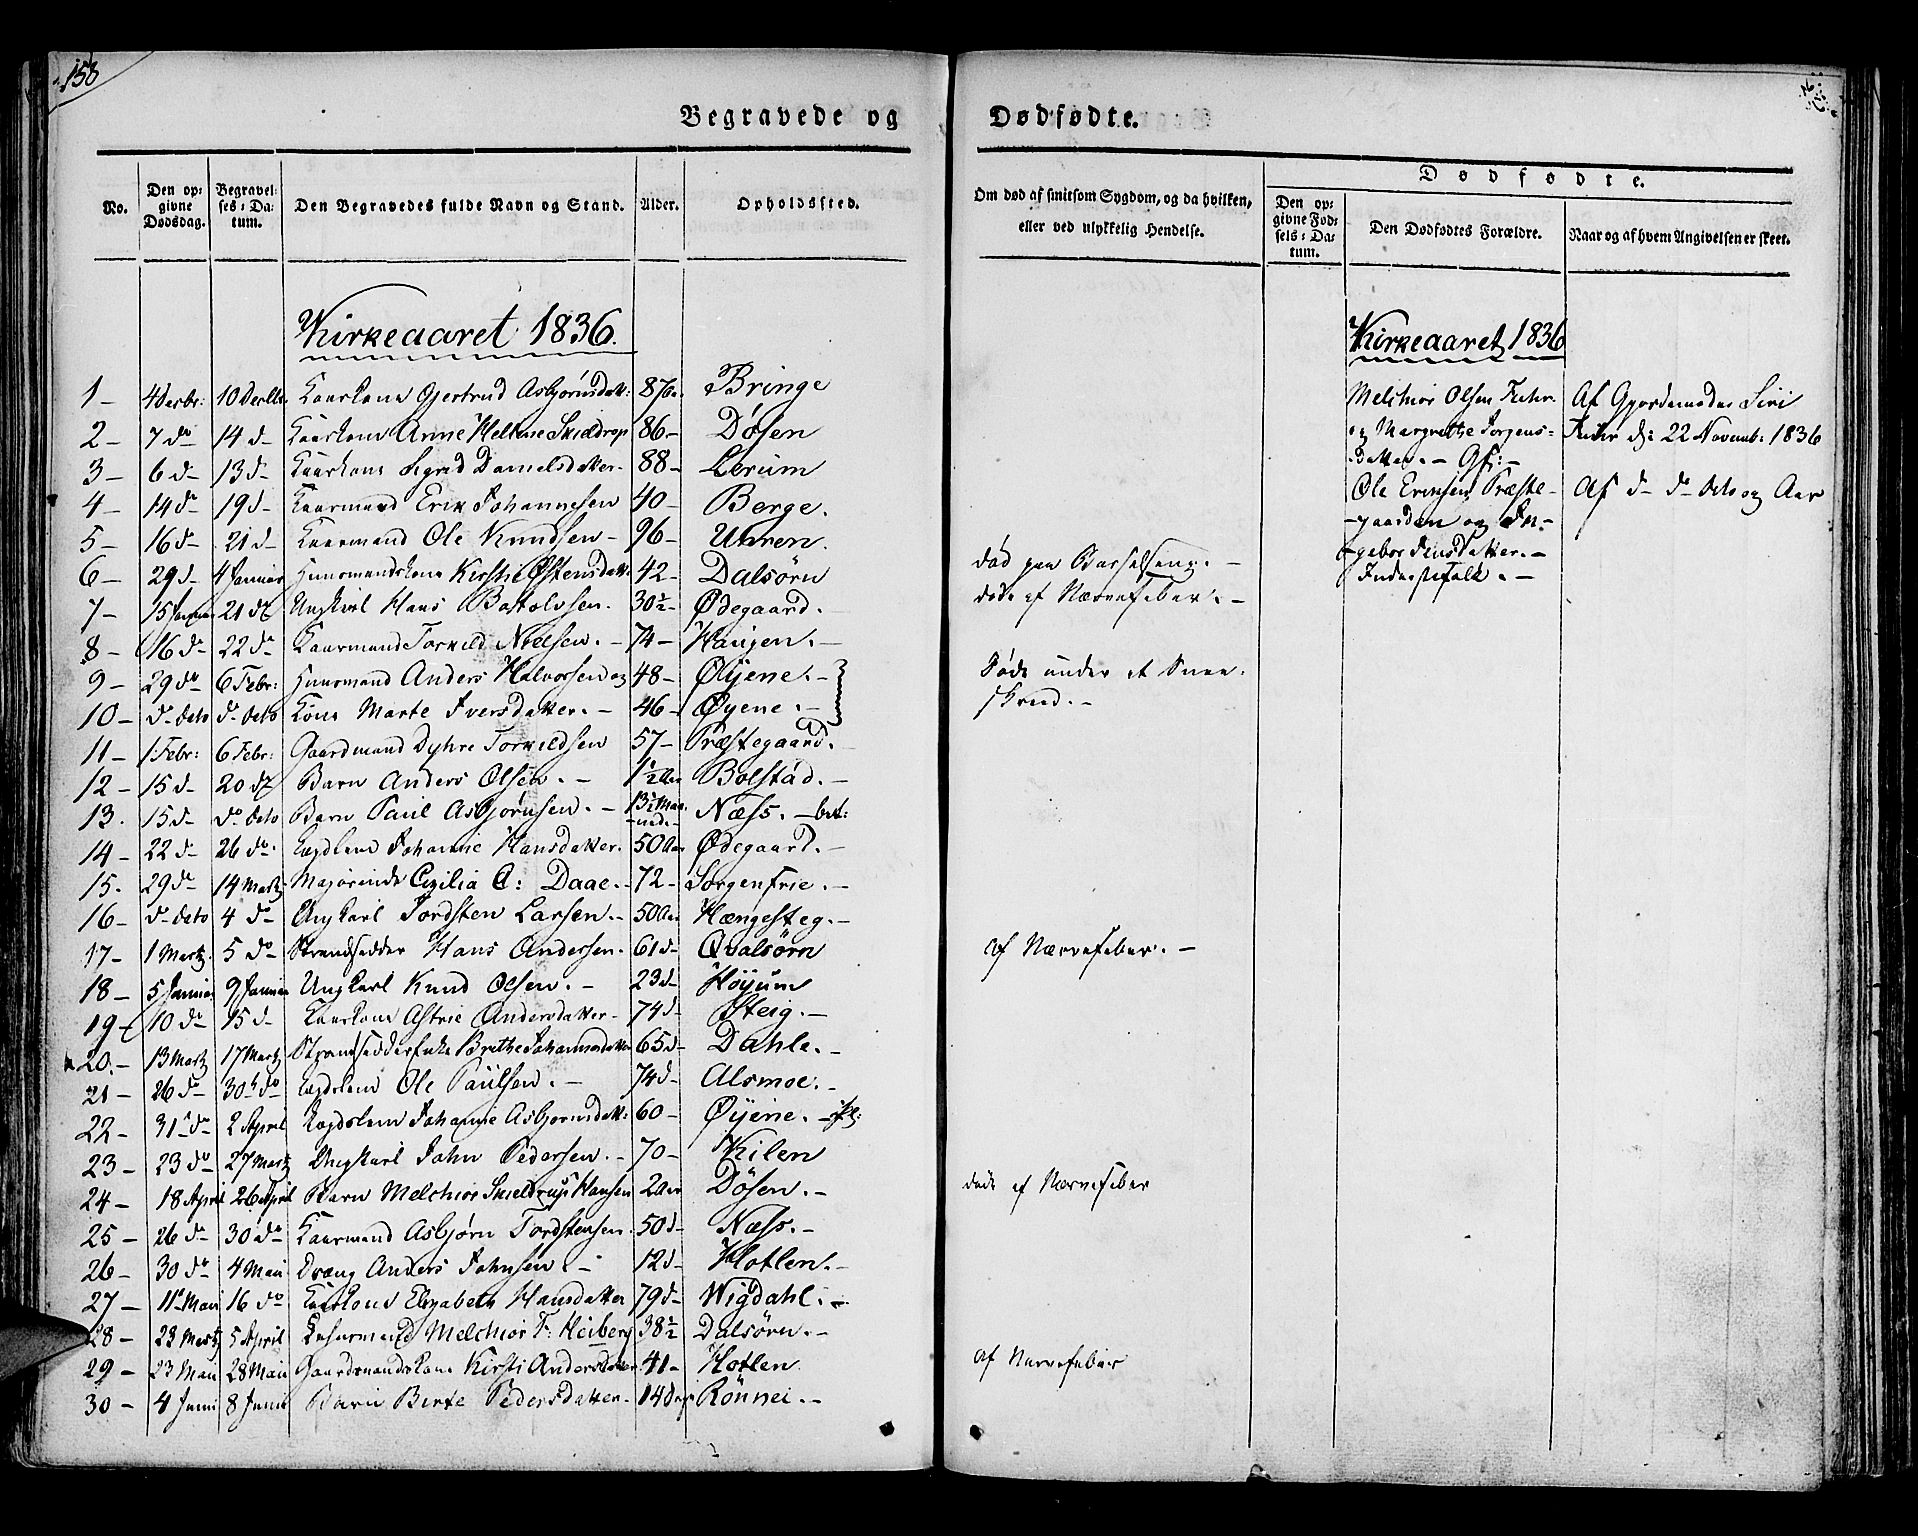 158
Begravede og Dødfødte.
No. Den opgivne Dødsdag. Begravelses-Datum. Den Begravedes fulde Navn og Stand. Alder. Opholdssted. Om død af smitsom Sygdom, og da hvilken, eller ved ulykkelig Hendelse.
Dødfødte.
Den opgivne Fødsels-Datum. Den Dødfødtes Forældre. Naar og af hvem Angivelsen er skeet.
Kirkeaaret 1836.
1 - 4 Decbr: 10 Decbr. Kaarkone Gjertrud Asbjörnsdatt: 87 Bringe
2 - 7 do 14 d- Kaarkone Anne Helene Skieldrop 86 - Dösen
3 - 6 d- 13 d- Kaarkone Sigrid Danielsdatter - 88 - Lerum
4 - 14 do 19 d- Kaarmand Erik Johannesen 40 - Berge.
5 - 16 d- 21 d- Kaarmand Ole Knudsen - 96 - Uhren.
6 - 29 d- 4 Januar Huusmandskone Kirsti Östensdatt: 42 - Dalsörn død paa Barselseng. -
7 - 15 Januar 21 do Ungkarl Hans Bottolvsen. 30½ - Ødegaard. døde af Nærvefeber. -
8 - 16 d- 22 do Kaarmand Torkild Nielsen. - 74 - Haugen. -
9 - 29 do 6 Febr: Huusmand Anders Halvorsen og 48 - Øyene. - Døde under et Snee-
10 - d- dato d- dato Kone Marte Iversdatter. - 46 - Øyene. - skred. -
11 - 1 Febr: 6 Febr: Gaardmand Dyhre Torkildsen 57 - Præstegaard.
12 - 15 d- 20 do Barn Anders Olsen. - 1½ Aar Bolstad. -
13. 15 d- do dato Barn Paul Asbjørnsen. - 13½ Maaned. - Næss. -
14 - 22 d- 26 do Lægdslem Johanne Hansdatter. 50 Aar Ødegaard. -
15. 29 do 14 Martz Majorinde Cezilia C: Daae. - 72 - Sorgenfrie. -
16 - d- dato 4 do Ungkarl Tordsten Larsen. - 50 Aar Hængesteg. -
17 - 1 Martz. 5 do Strandsidder Hans Andersen. 61 d- Qvalsörn af Nærvefeber. -
18 - 5 Januar 9 Januar Ungkarl Knud Olsen. - 23 d- Höyum
19 - 10 do 15 d- Kaarkone Astrie Andersdatter - 74 d- Steig. -
20. - 13 Martz 17 Martz Strandsidderenke Brithe Johannesdatter 65 d- Dahle. -
21 - 26 do 30 do Lægdslem Ole Paulsen. - 74 d- Alsmoe. -
22 - 31 do 2 April Lægdslem Johanne Asbjörnsdatt: 60 - Øyene. -
23 - 23 do 27 Martz Ungkarl John Pedersen. - 70 - Kilen
24 - 18 April 26 April Barn Melchior Skieldrup Hansen 2 Aar Dösen. - døde af Nærvefeber
25 - 26 do 30 do Kaarmand Asbjørn Tordstensen. 50 d- Næss. -
26 - 30 do 4 Mai Dreng Anders Johnsen. - 12 d- Hotlen. -
27 - 11 Mai 16 do Kaarkone Elisabeth Hansdatter 79 d- Wigdahl. -
28 - 23 Martz 5 April Melchior F: Heiberg 38½ Dalsörn. -
29 - 23 Mai 28 Mai Gaardmandskone Kirsti Andersdatter 41 - Hotlen. af Nervefeber
30 - 4 Juni 8 Juni Barn Birte Pedersdatter. - 14 Dage Rönnei. -
Kirkeaaret 1836
Melchior Olsen Fuhr Af Gjordemoder Siri
og Margrethe Jorgens- Fuhr d: 22 Novemb: 1836
datter. - Gf: -
Ole Eriksen Præste- Af d- do dato og Aar
-gaarden og In-
-gebor Jensdatter. -
Inderstefolk. -